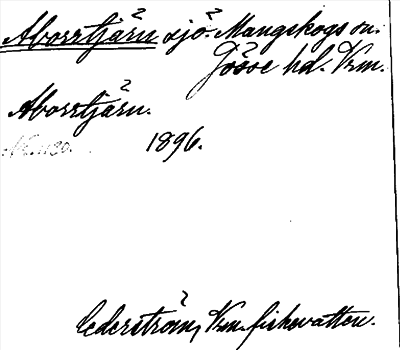 Aborrtjärn sjö. Mangskogs sn.
Jösse hd. Vrm.
Aborrtjärn.
1896.
Cederström, Vrm. fiskevatten.